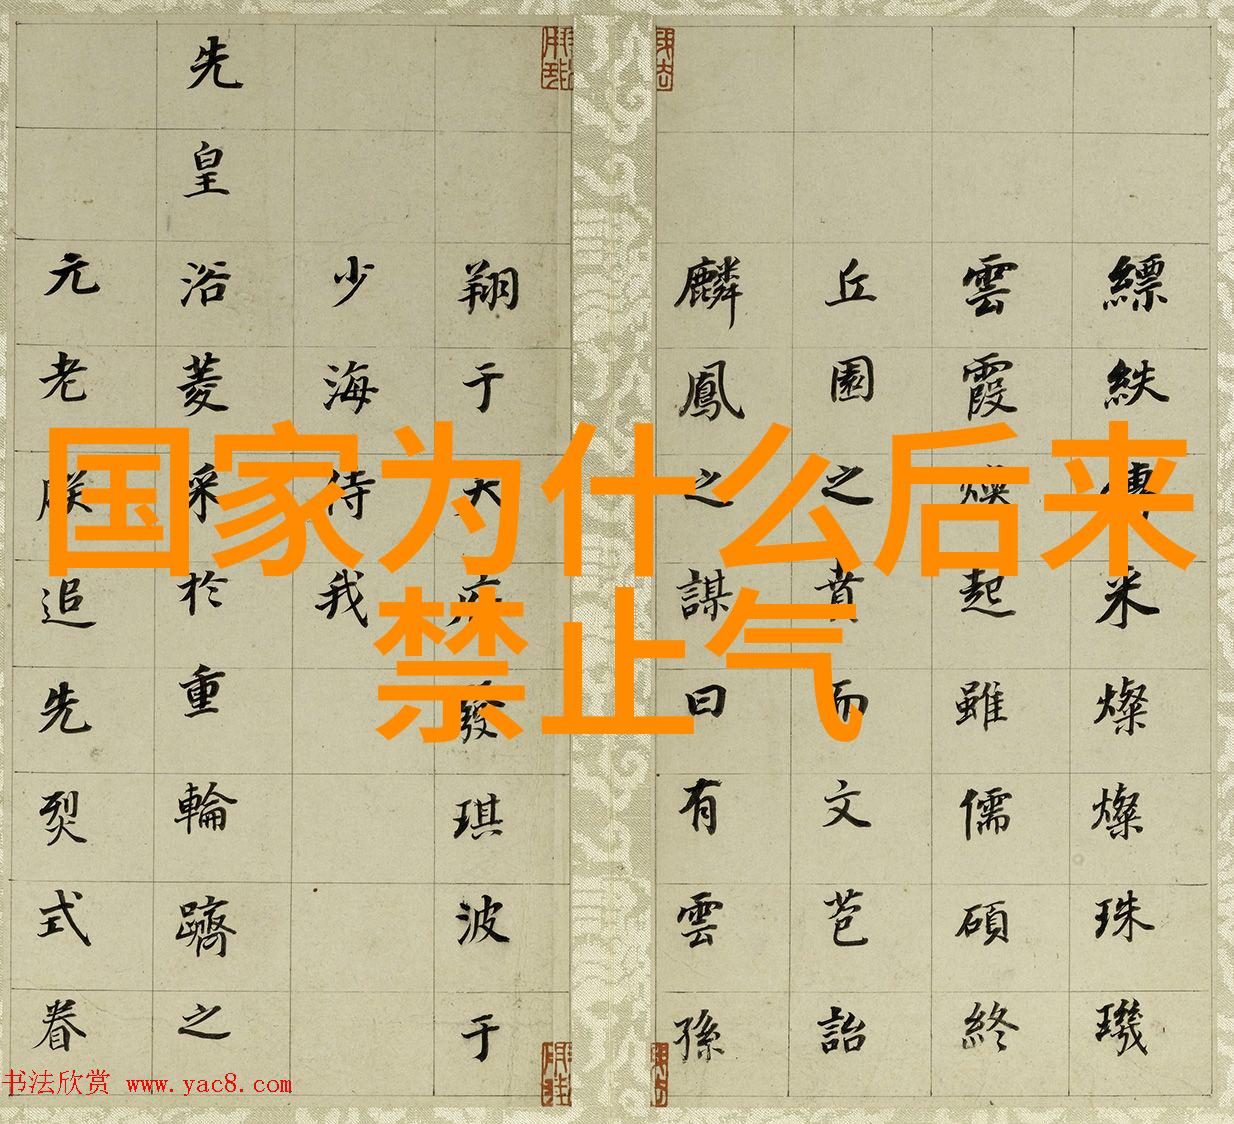 国家为什么后来
禁止气
縹紩傳米燦燦珠璣
雲霞煥起雖儒碩終
丘園之賁而文芭詒
麟鳳之謀曰有雲孫
翔于天府發琪波于
少海侍我
先皇浴菱采於重輪躋之
元老朕追先烈式眷
书法欣赏 www.yac8.com